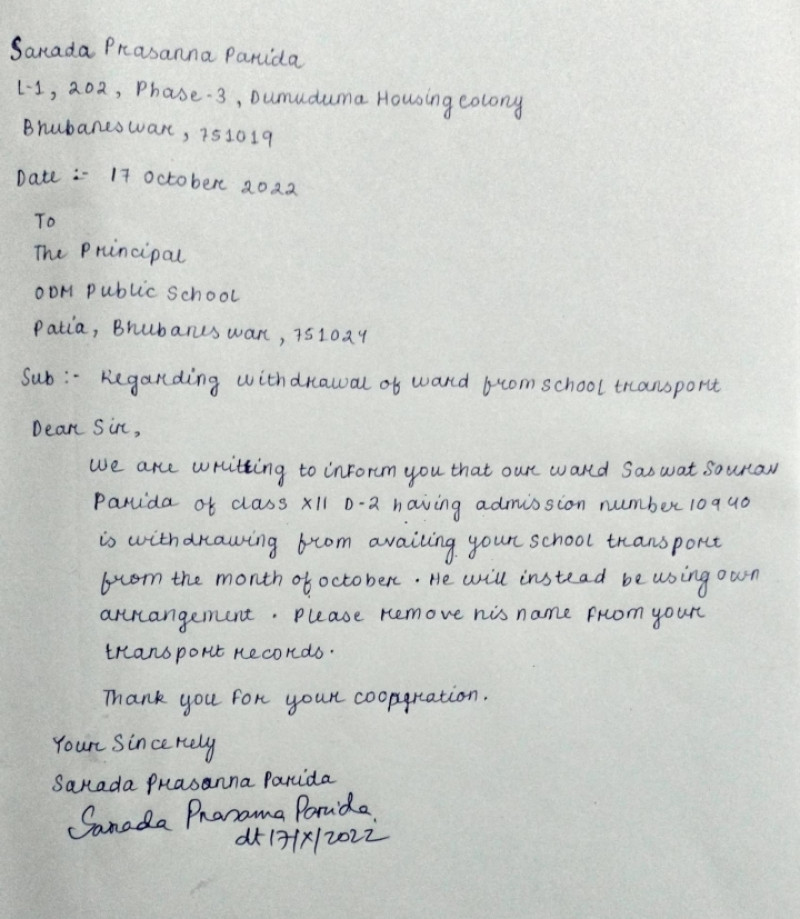 Sarada Prasanna Parida
L-1, 202, Phase-3, Dumuduma Housing colony
Bhubaneswar, 751019
Date :- 17 October 2022
To
The Principal
ODM Public School
Patia, Bhubaneswar, 751024
Sub :- Regarding withdrawal of ward from school transport
Dear Sir,
We are writting to inform you that our ward Saswat Sourav
Parida of class XII D-2 having admission number 10940
is withdrawing from availing your school transport
from the month of october. He will instead be using own
arrangement. Please remove his name from your
transport records.
Thank you for your cooperation.
Your Sincerely
Sarada Prasanna Parida
Sarada Prasanna Parida
dt 17/X/2022